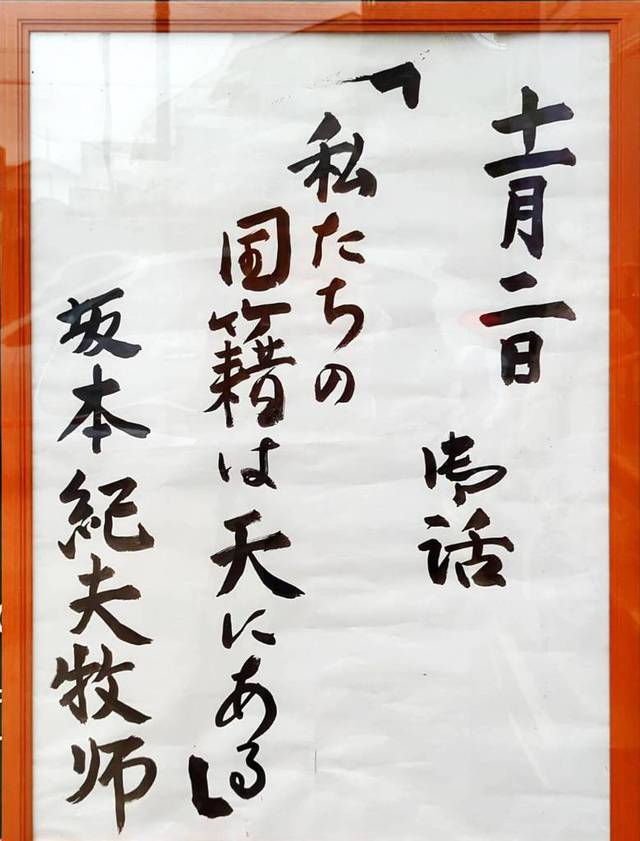 十一月二日
御話
「私たちの
国籍は天にある」
坂本紀夫牧师